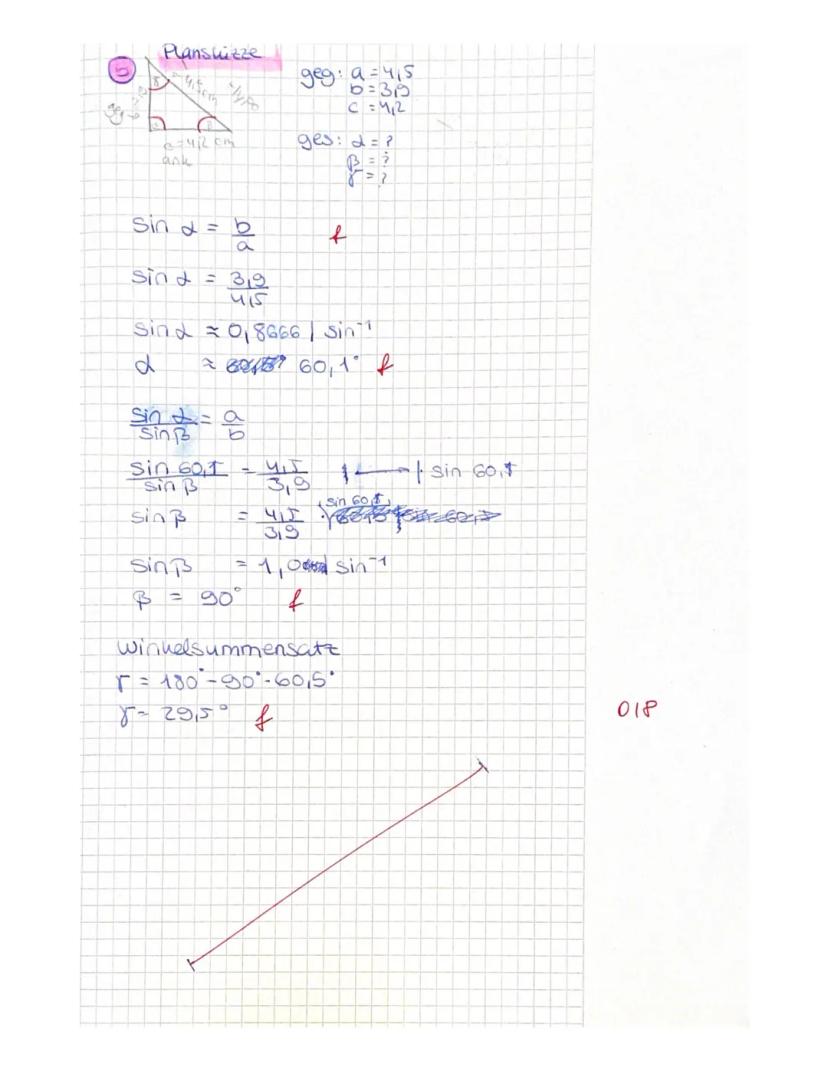 Planskizze
5
geg: a = 4,5
b = 3,9
c = 4,2
c = 4,2 cm
ank
ges: α = ?
β = ?
γ = ?
sin α = b/a f
sin α = 3,9/4,5
sin α ≈ 0,8666 | sin⁻¹
α ≈ 60,1° f
sin α/sin β = a/b
sin 60,1/sin β = 4,5/3,9 | · sin 60,1
sin β = 4,5/3,9 · sin 60,1
sin β = 1,0 | sin⁻¹
β = 90° f
Winkelsummensatz
γ = 180° - 90° - 60,5°
γ = 29,5° f
0/8